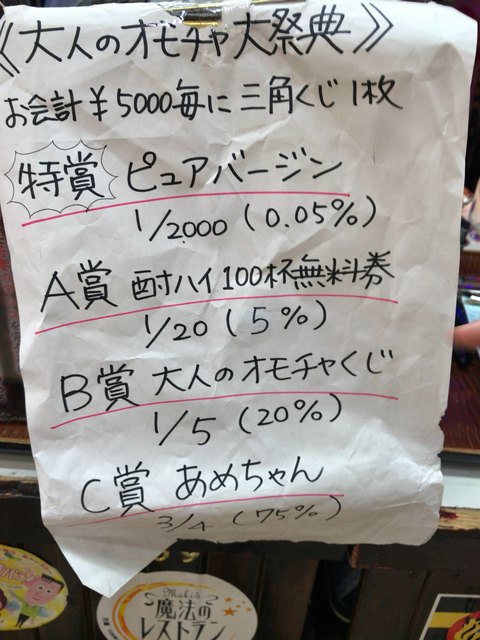 《大人のオモチャ大祭典》
お会計¥5000毎に三角くじ1枚
特賞 ピュアバージン
1/2000 (0.05%)
A賞 酎ハイ100杯無料券
1/20 (5%)
B賞 大人のオモチャくじ
1/5 (20%)
C賞 あめちゃん
3/4 (75%)
魔法の
レストラン